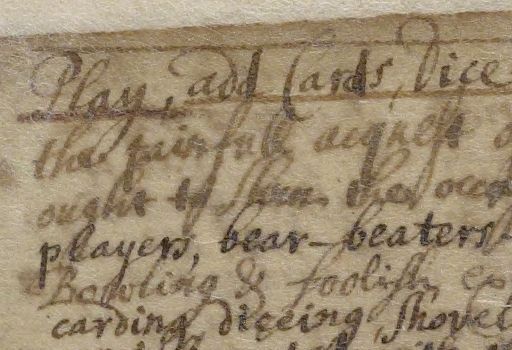 Play, add Cards, Dice
the painfull acquest o
ought to shun the occ
players, bear-beaters
Bowling & foolish ex
carding diceing, shovel